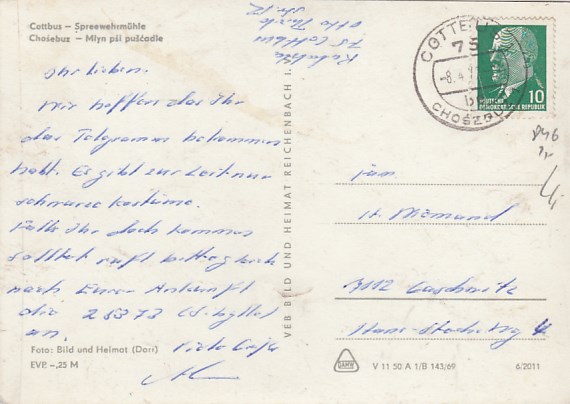 Cottbus – Spreewehrmühle
Chośebuz – Młyn pśi pušćadle
75 Cottbus
Ihr Lieben.
Wir hoffen das Ihr
das Telegramm bekommen
habt. Es gibt zur Zeit nur
schwarze Kostüme.
Falls Ihr doch kommen
solltet ruft bitte gleich
nach Eurer Ankunft
die 25373
an. Viele Grüße
Foto: Bild und Heimat (Darr)
EVP. –,25 M
VEB BILD UND HEIMAT REICHENBACH I.
COTTBUS
75
-8.4.
CHOŚEBUZ
DEUTSCHE
DEMOKRATISCHE REPUBLIK
10
Fam.
H. Niemand
V 11 50 A 1/B 143/69
6/2011